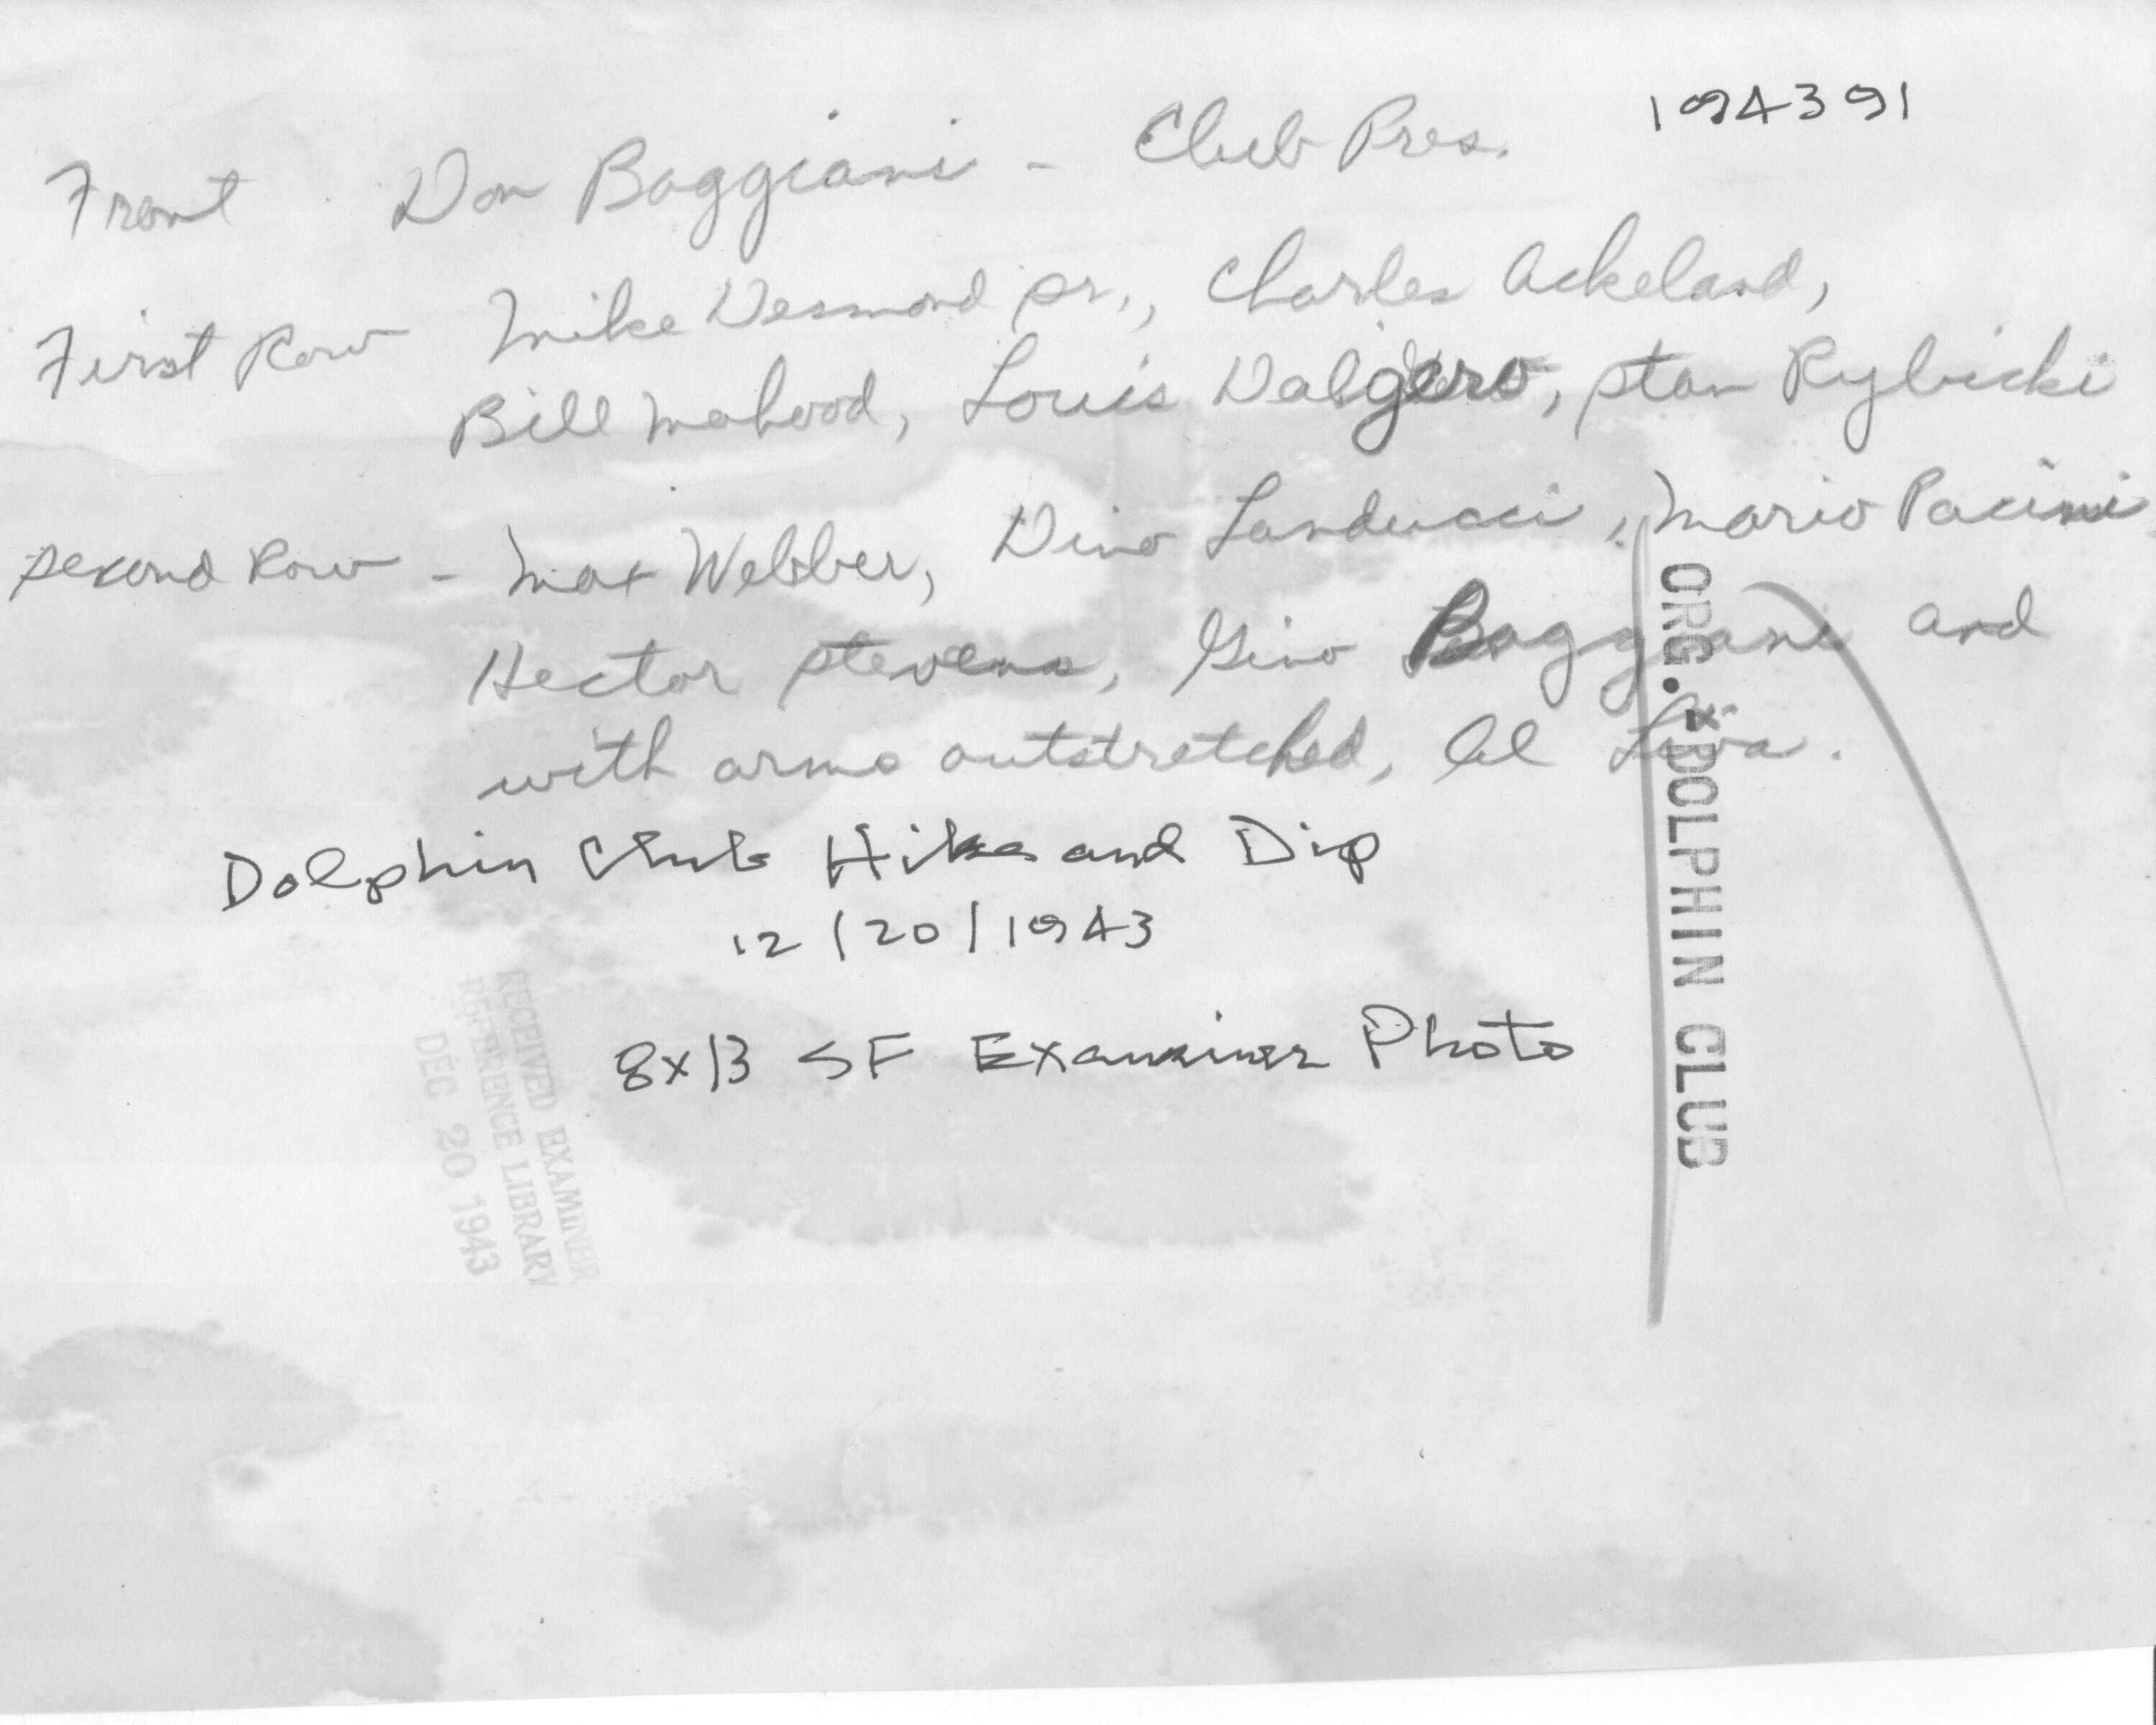 1094391
Front Don Boggiani - Club Pres.
First Row Mike Desmond sr., Charles Ackeland,
Bill Mahood, Louis Dalgero, Stan Rybicki
Second Row - Max Webber, Dino Landucci, Mario Pacini
Hector Stevens, Gino Boggiani and
with arms outstretched, Al
Dolphin Club Hike and Dip
12/20/1943
8x13 SF Examiner Photo
ORG. - DOLPHIN CLUB
RECEIVED EXAMINER
REFERENCE LIBRARY
DEC 20 1943